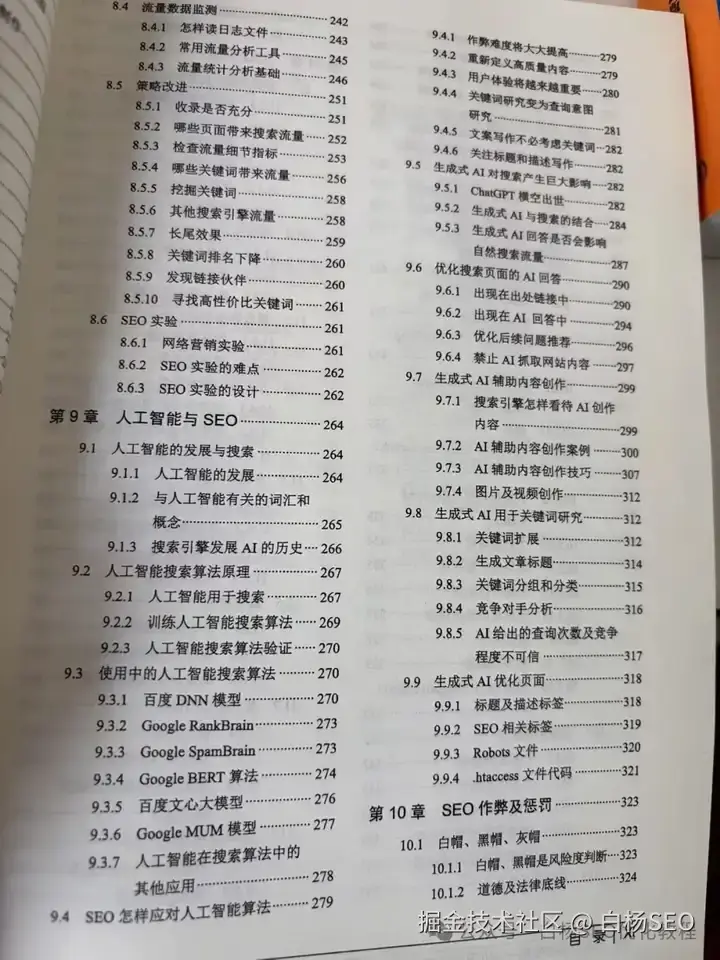 8.4 流量数据监测 242
8.4.1 怎样读日志文件 243
8.4.2 常用流量分析工具 245
8.4.3 流量统计分析基础 246
8.5 策略改进 251
8.5.1 收录是否充分 251
8.5.2 哪些页面带来搜索流量 252
8.5.3 检查流量细节指标 253
8.5.4 哪些关键词带来流量 256
8.5.5 挖掘关键词 258
8.5.6 其他搜索引擎流量 258
8.5.7 长尾效果 259
8.5.8 关键词排名下降 260
8.5.9 发现链接伙伴 260
8.5.10 寻找高性价比关键词 261
8.6 SEO 实验 261
8.6.1 网络营销实验 261
8.6.2 SEO 实验的难点 262
8.6.3 SEO 实验的设计 262
第 9 章 人工智能与 SEO 264
9.1 人工智能的发展与搜索 264
9.1.1 人工智能的发展 264
9.1.2 与人工智能有关的词汇和
概念 265
9.1.3 搜索引擎发展 AI 的历史 266
9.2 人工智能搜索算法原理 267
9.2.1 人工智能用于搜索 267
9.2.2 训练人工智能搜索算法 269
9.2.3 人工智能搜索算法验证 270
9.3 使用中的人工智能搜索算法 270
9.3.1 百度 DNN 模型 270
9.3.2 Google RankBrain 273
9.3.3 Google SpamBrain 273
9.3.4 Google BERT 算法 274
9.3.5 百度文心大模型 276
9.3.6 Google MUM 模型 277
9.3.7 人工智能在搜索算法中的
其他应用 278
9.4 SEO 怎样应对人工智能算法 279
9.4.1 作弊难度将大大提高 279
9.4.2 重新定义高质量内容 279
9.4.3 用户体验将越来越重要 280
9.4.4 关键词研究变为查询意图
研究 281
9.4.5 文案写作不必考虑关键词 282
9.4.6 关注标题和描述写作 282
9.5 生成式 AI 对搜索产生巨大影响 282
9.5.1 ChatGPT 横空出世 282
9.5.2 生成式 AI 与搜索的结合 284
9.5.3 生成式 AI 回答是否会影响
自然搜索流量 287
9.6 优化搜索页面的 AI 回答 290
9.6.1 出现在出处链接中 290
9.6.2 出现在 AI 回答中 294
9.6.3 优化后续问题推荐 296
9.6.4 禁止 AI 抓取网站内容 297
9.7 生成式 AI 辅助内容创作 299
9.7.1 搜索引擎怎样看待 AI 创作
内容 299
9.7.2 AI 辅助内容创作案例 300
9.7.3 AI 辅助内容创作技巧 307
9.7.4 图片及视频创作 312
9.8 生成式 AI 用于关键词研究 312
9.8.1 关键词扩展 312
9.8.2 生成文章标题 314
9.8.3 关键词分组和分类 315
9.8.4 竞争对手分析 316
9.8.5 AI 给出的查询次数及竞争
程度不可信 317
9.9 生成式 AI 优化页面 318
9.9.1 标题及描述标签 318
9.9.2 SEO 相关标签 319
9.9.3 Robots 文件 320
9.9.4 .htaccess 文件代码 321
第 10 章 SEO 作弊及惩罚 323
10.1 白帽、黑帽、灰帽 323
10.1.1 白帽、黑帽是风险度判断 323
10.1.2 道德及法律底线 324
掘金技术社区 @ 白杨SEO
目 录